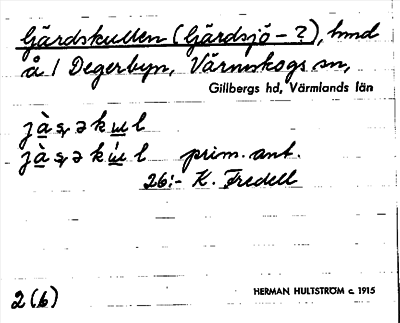 Gärdskullen (Gärdsjö-?), hmd
å 1 Degerbyn, Värmskogs sn,
Gillbergs hd, Värmlands län
prim. ant.
26:- K. Fredell
2(b)
HERMAN HULTSTRÖM c. 1915